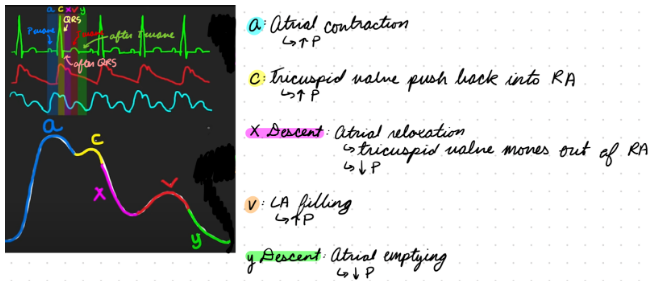 a c x v y
QRS
P wave
after T wave
after QRS
a
c
x
v
y
a: Atrial contraction
↳ ↑ P
c: Tricuspid valve push back into RA
↳ ↑ P
x Descent: Atrial relaxation
↳ tricuspid valve moves out of RA
↳ ↓ P
v: LA filling
↳ ↑ P
y Descent: Atrial emptying
↳ ↓ P